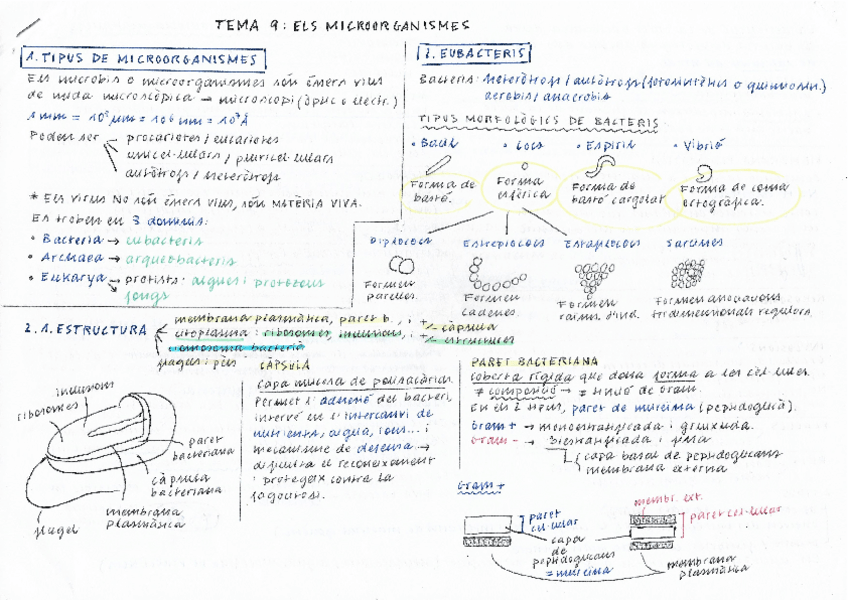 TEMA 9: ELS MICROORGANISMES
1. TIPUS DE MICROORGANISMES
Els microbis o microorganismes són éssers vius
de mida microscòpica → microscopi (òptic o electr.)
1 mm = 10³ μm = 10⁶ nm = 10⁷ Å
Poden ser
procariotes / eucariotes
unicel·lulars / pluricel·lulars
autòtrofs / heteròtrofs
* Els virus NO són éssers vius, són MATÈRIA VIVA.
Es troben en 3 dominis:
• Bacteria → eubacteris
• Archaea → arqueobacteris
• Eukarya → protists: algues i protozous
fongs
2. EUBACTERIS
Bacteris: heteròtrofs / autòtrofs (fotosintètics o quimiosin.)
aerobis / anaerobis
TIPUS MORFOLÒGICS DE BACTERIS
• Bacil • Cocs • Espiril • Vibrió
Forma de
bastó.
Forma
esfèrica
Forma de
bastó cargolat
Forma de coma
ortogràfica.
Diplococs Estreptococs Estafilococs Sarcines
Formen
parelles.
Formen
cadenes.
Formen
raïms d'ind.
Formen
tridimensionals regulars.
2.1. ESTRUCTURA
membrana plasmàtica, paret b., i +/- càpsula
citoplasma: ribosomes, inclusions, i +/- estructures
cromosoma bacterià
flagel i pèls
inclusions
ribosomes
paret
bacteriana
càpsula
bacteriana
membrana
plasmàtica
flagel
CÀPSULA
Capa mucosa de polisacàrids.
Permet l'adhesió del bacteri,
intervé en l'intercanvi de
nutrients, aigua, ions... i
mecanisme de defensa →
dificulta el reconeixement
i protegeix contra la
fagocitosi.
PARET BACTERIANA
Coberta rígida que dona forma a les cèl·lules.
≠ composició → ≠ tinció de Gram.
En els 2 tipus, paret de mureïna (peptidoglicà).
Gram + → monoestratificada i gruixuda.
Gram - → biestratificada i prima
capa basal de peptidoglicans
membrana externa
Gram +
paret
cel·lular
capa
de
peptidoglicans
= mureïna
membr. ext.
paret cel·lular
membrana
plasmàtica